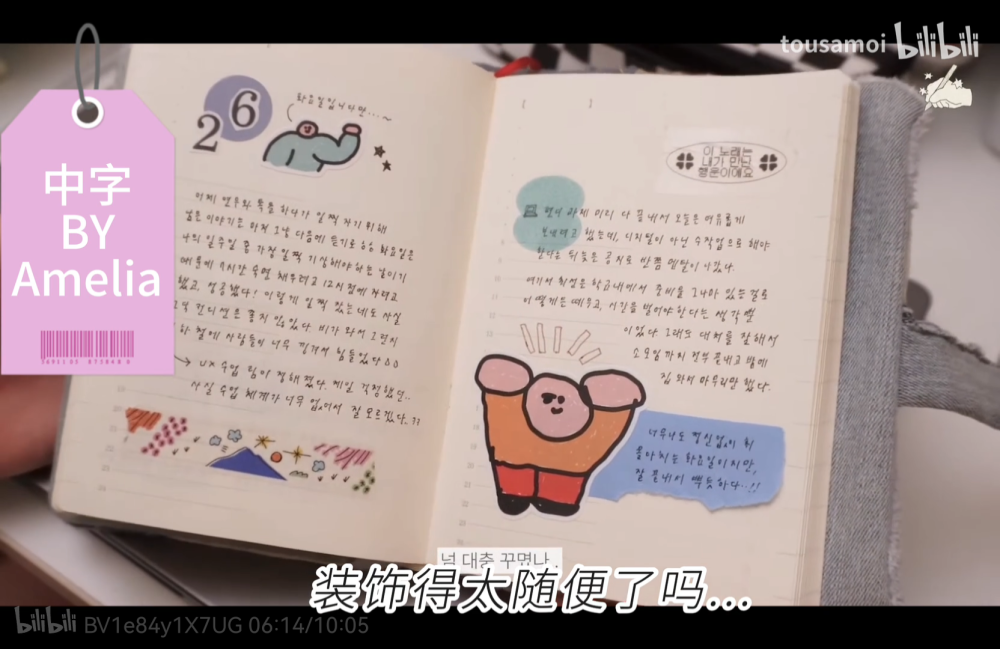 tousamoi bilibili
中字
BY
Amelia
26
화요일입니다만...~
어제 연우와 톡을 하다가 일찍 자기 위해
남은 이야기는 그냥 다음에 듣기로 ㅎㅎ 화요일은
나의 일주일 중 가장 일찍 기상해야하는 날이기
때문에 7시간 수면 채우려고 12시 전에 자려고
했고, 성공했다! 이렇게 일찍 잤는데도 사실
컨디션은 좋지 않았다. 비가 와서 그런지
하철에 사람들이 너무 낑겨서 힘들었다
→ UX 수업 팀이 정해졌다. 제일 걱정했던..
사실 수업 체계가 너무 없어서 잘 모르겠다. ??
이 노래는
내가 만난
행운이에요
과제 미리 다 끝내서 오늘은 여유롭게
보내려고 했는데, 디지털이 아닌 수작업으로 해야
한다는 뒤늦은 공지로 반쯤 멘탈이 나갔다.
여기서 최선은 학교내에서 준비물 그나마 있는걸로
어떻게든 떼우고, 시간을 벌어야한다는 생각뿐
이었다. 그래도 대처를 잘해서
소모임까지 전부 끝내고 밤에
집 와서 마무리만 했다.
너무나도 정신없이 휘
몰아치는 화요일이지만,
잘 끝내서 뿌듯하다..!!
넘 대충 꾸몄나..
装饰得太随便了吗...
bilibili BV1e84y1X7UG 06:14/10:05